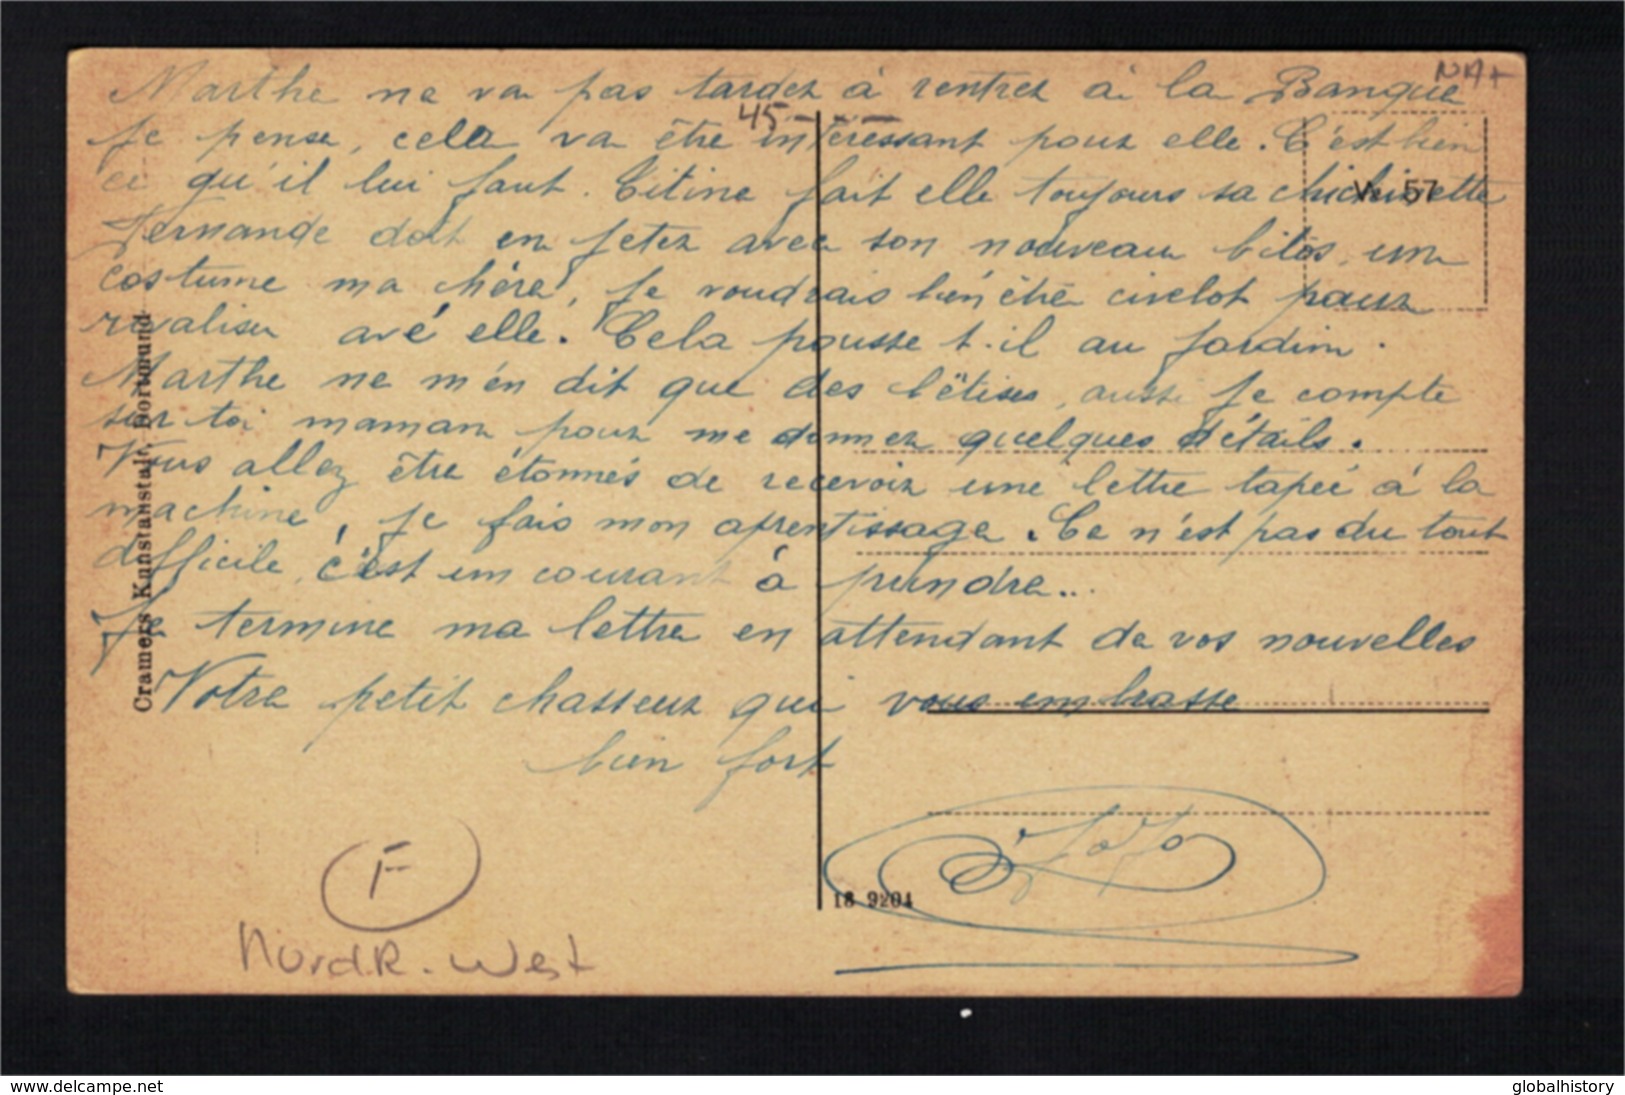 Marthe ne va pas tarder à rentrer à la Banque
Je pense, cela va être intéressant pour elle. C'est bien
ce qu'il lui faut. Titine fait elle toujours sa
Fernande doit en jeter avec son nouveau bitos, un
costume ma chère, je voudrais bien être civelot pour
rivaliser avé elle. Cela pousse t-il au jardin.
Marthe ne m'en dit que des bêtises, aussi je compte
sur toi maman pour me donner quelques détails.
Vous allez être étonnés de recevoir une lettre tapée à la
machine, je fais mon aprentissage. Ce n'est pas du tout
difficile, c'est un courant à prendre...
Je termine ma lettre en attendant de vos nouvelles
Votre petit chasseur qui vous embrasse
bien fort
JoJo
45 - - -
W 57
Cramers Kunstanstalt, Dortmund
18 9204
F
Nord.R. West
www.delcampe.net
globalhistory